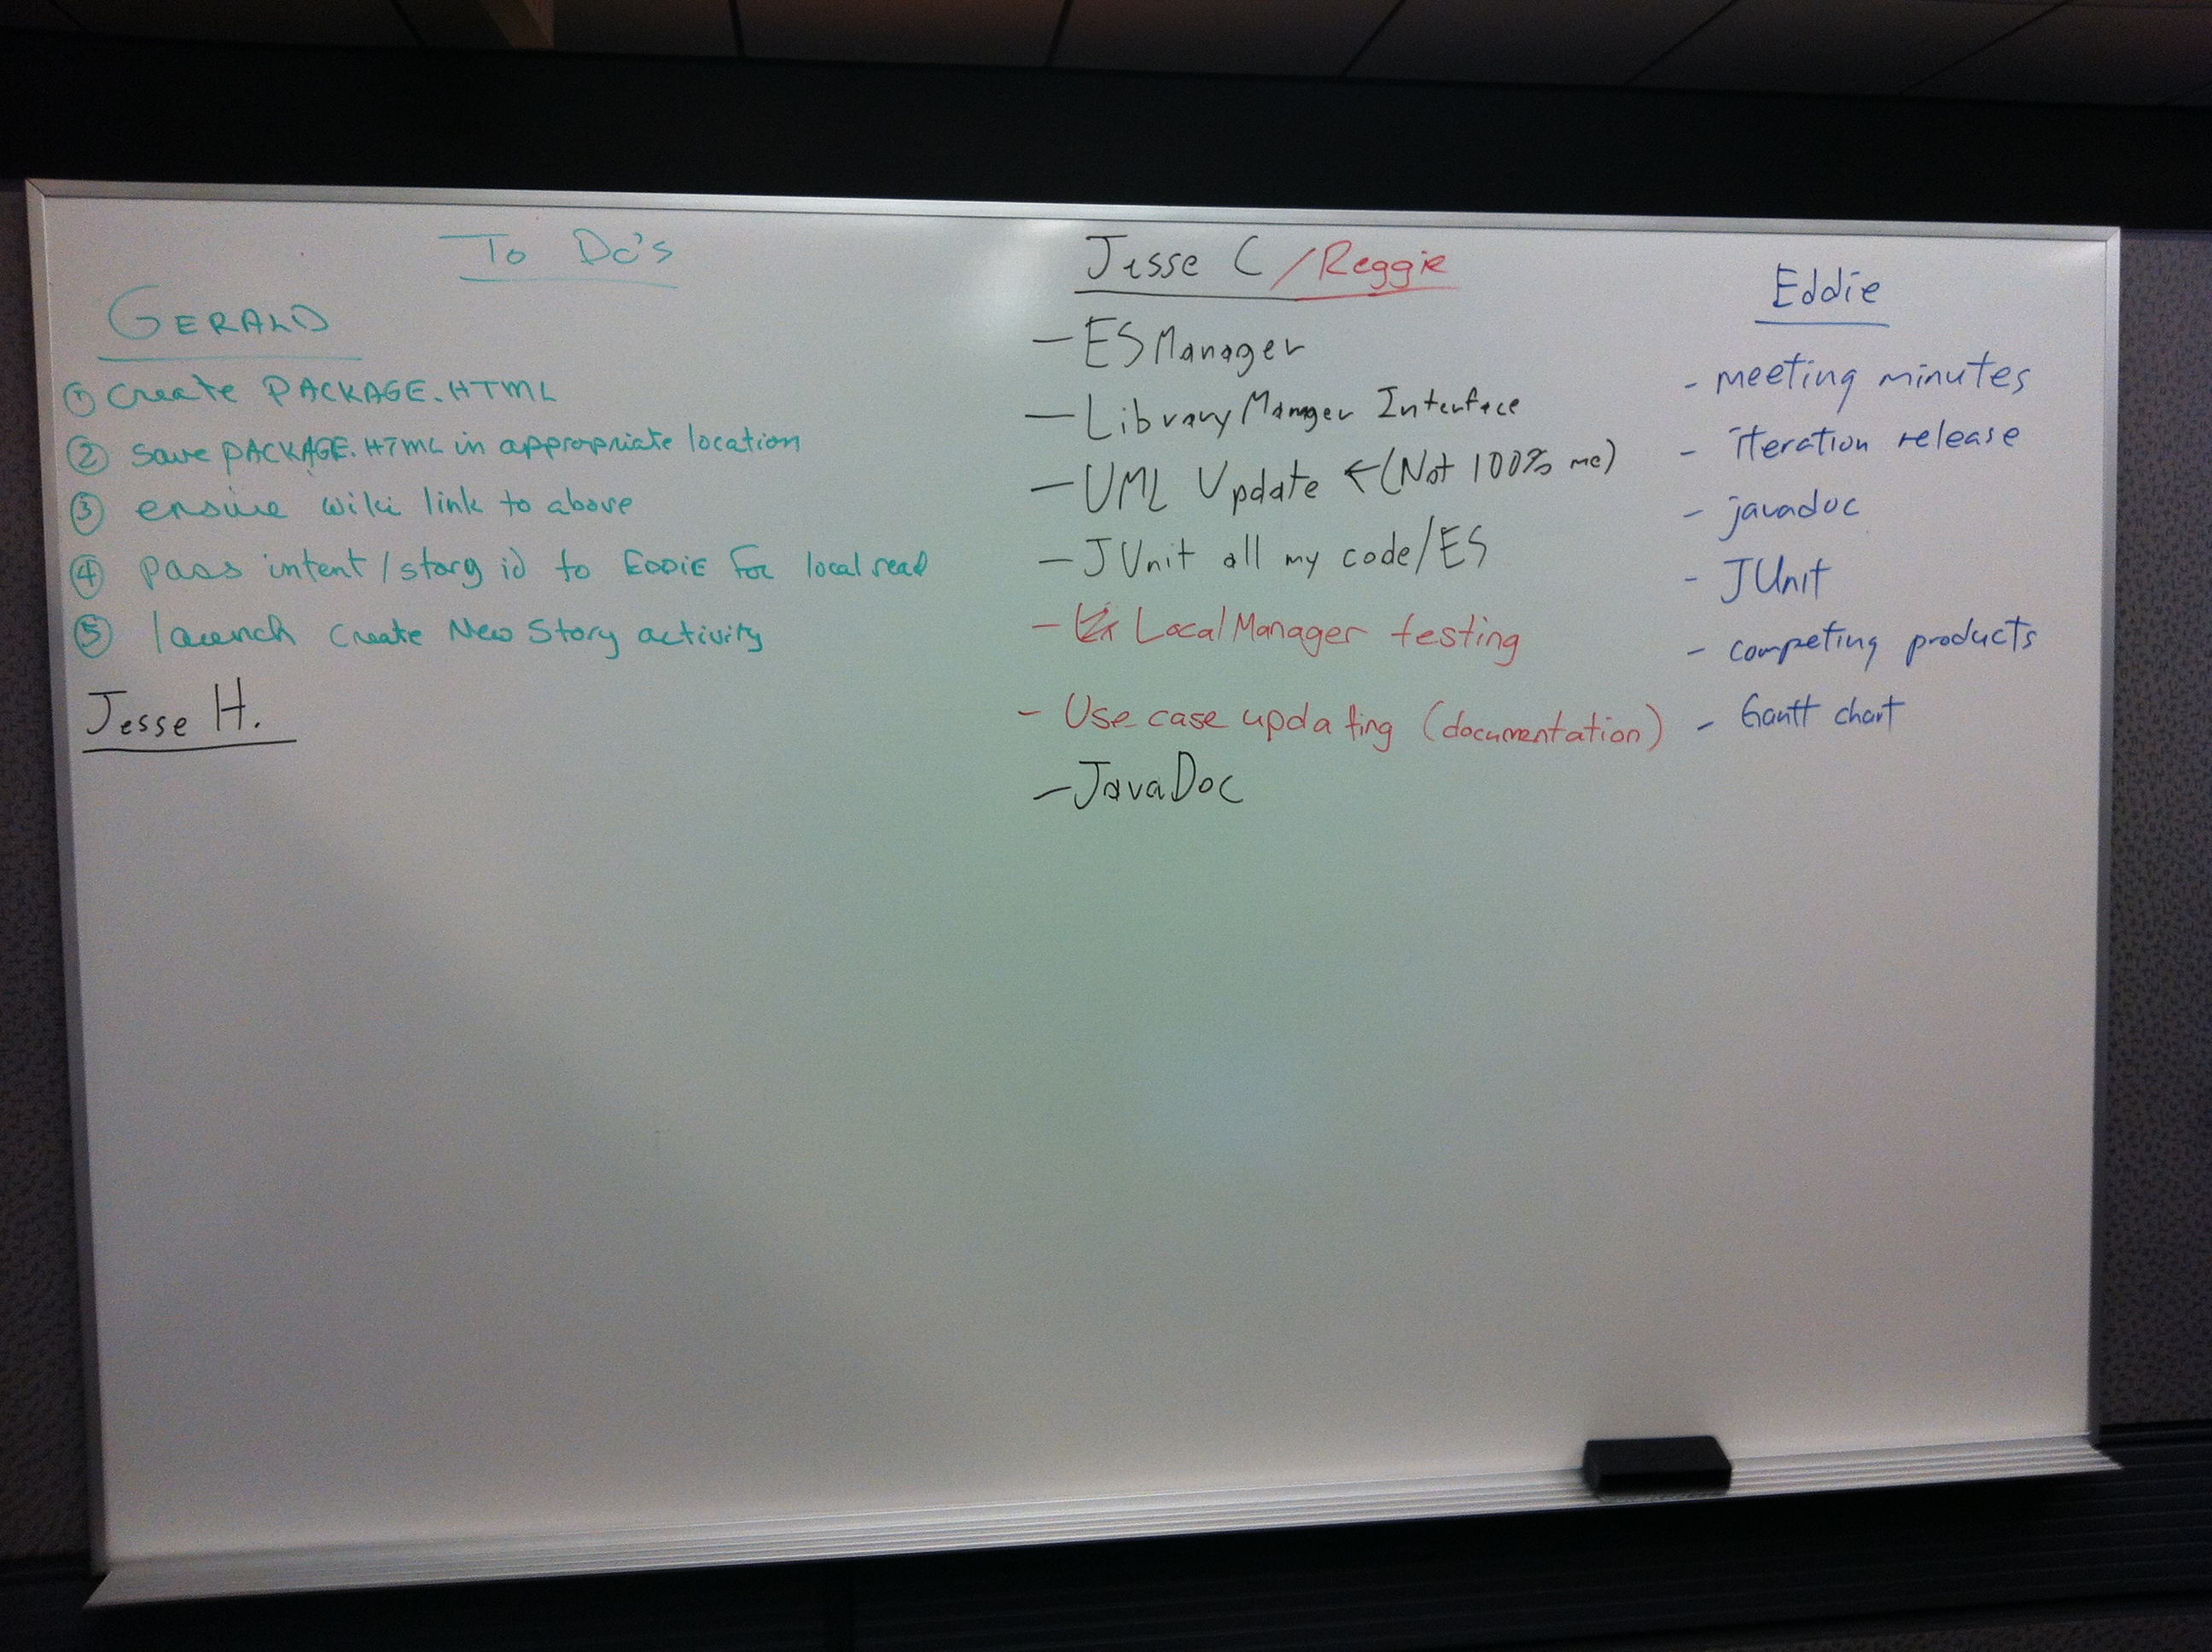 To Do's
GERALD
① Create PACKAGE.HTML
② Save PACKAGE.HTML in appropriate location
③ ensure wiki link to above
④ pass intent/story id to EDDIE For local read
⑤ launch Create New Story activity
Jesse H.
Jesse C/Reggie
- ESManager
- LibraryManager Interface
- UML Update ← (Not 100% me)
- JUnit all my code/ES
- LocalManager testing
- Use case updating (documentation)
- JavaDoc
Eddie
- meeting minutes
- iteration release
- javadoc
- JUnit
- competing products
- Gantt chart